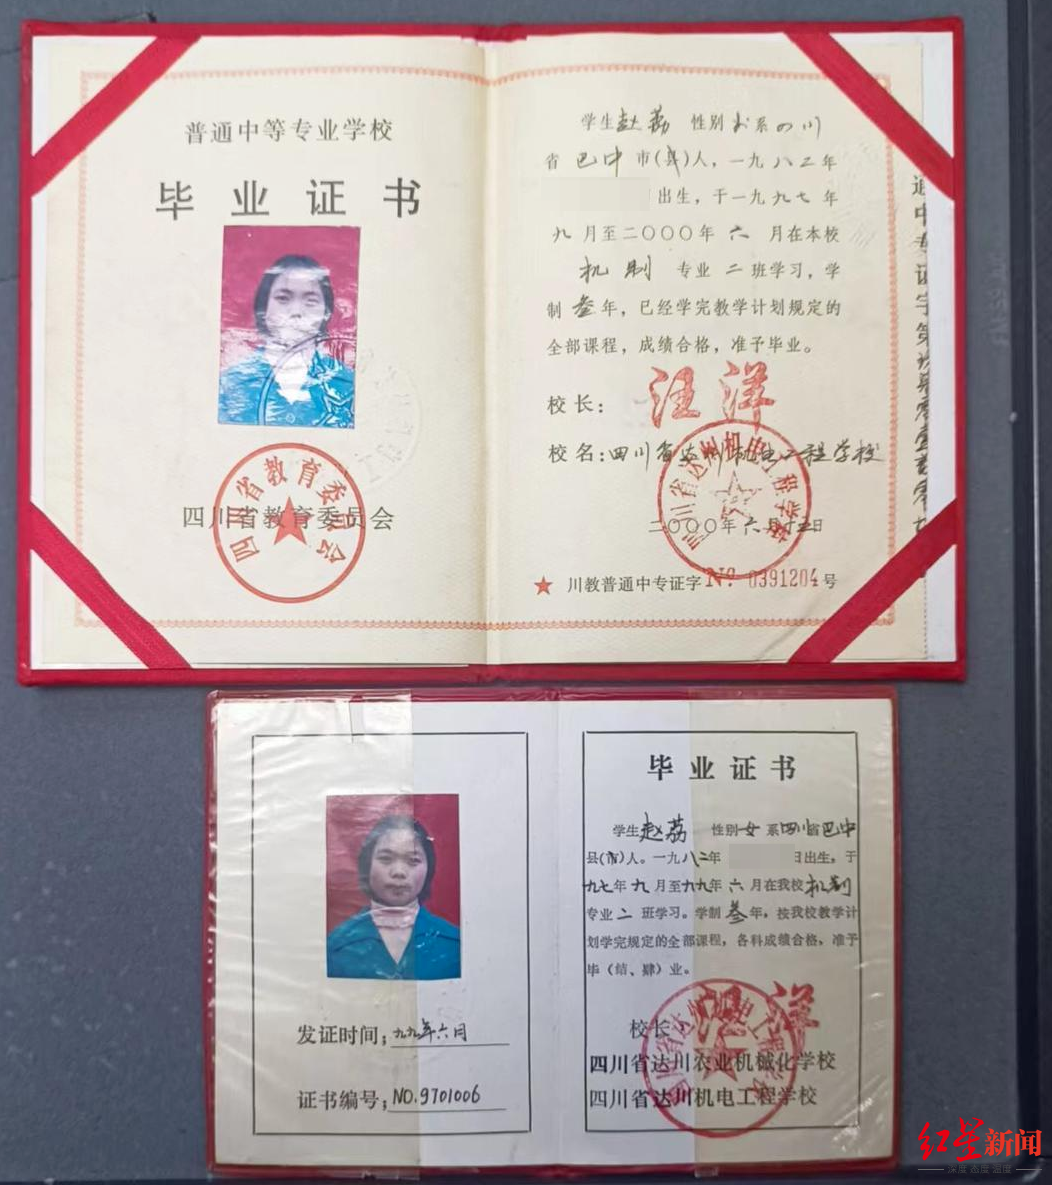 普通中等专业学校
毕业证书
四川省教育委员会
四川省教育委员会
学生赵荔 性别女系四川
省巴中市(县)人，一九八二年
出生，于一九九七年
九月至二〇〇〇年六月在本校
机制 专业二班学习，学
制叁年，已经学完教学计划规定的
全部课程，成绩合格，准予毕业。
校长：汪洋
校名：四川省达州机电工程学校
四川省达州机电工程学校
二〇〇〇年六月十五日
川教普通中专证字№ 0391204号
通中专证字第
毕业证书
学生赵荔 性别女系四川省巴中
县(市)人。一九八二年 日出生，于
九七年九月至九九年六月在我校机制
专业二班学习。学制叁年，按我校教学计
划学完规定的全部课程，各科成绩合格，准予
毕（结、肄）业。
校长 汪洋
四川省达川农业机械化学校
四川省达川机电工程学校
发证时间；九九年六月
证书编号；NO.9701006
红星新闻
深度 态度 温度